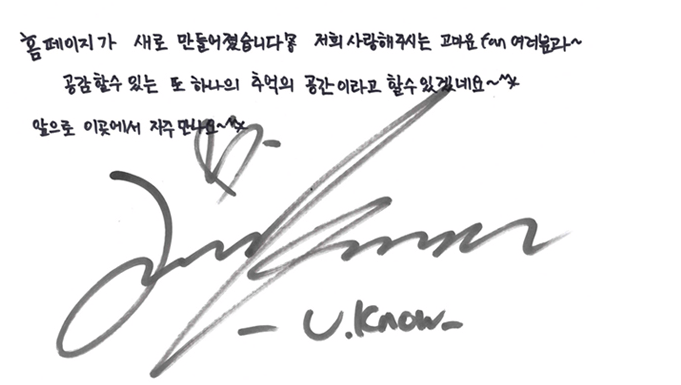 홈페이지가 새로 만들어졌습니다! 저희 사랑해주시는 고마운 fan 여러분과~
공감할수 있는 또 하나의 추억의 공간이라고 할수있겠네요~^^*
앞으로 이곳에서 자주만나요~^^*
- U.Know-